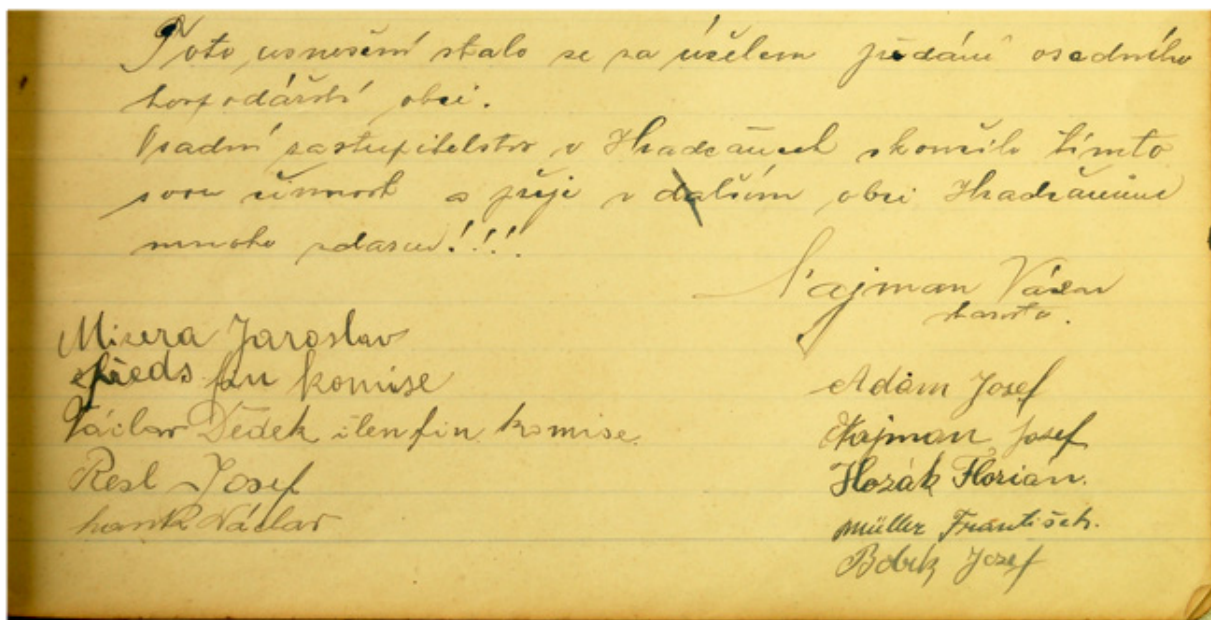 Toto usnešení stalo se za účelem předání osadního
hospodářství obci.
Osadní zastupitelstvo v Hradčanech skončilo tímto
svou činnost a přeje v dalším obci Hradčanům
mnoho zdaru!!!
Najman Václav
starosta.
Misera Jaroslav
předs fin komise
Václav Dědek člen fin. komise.
Resl Josef
Václav
Adam Josef
Najman Josef
Hozák Florián.
Müller František.
Bobek Josef